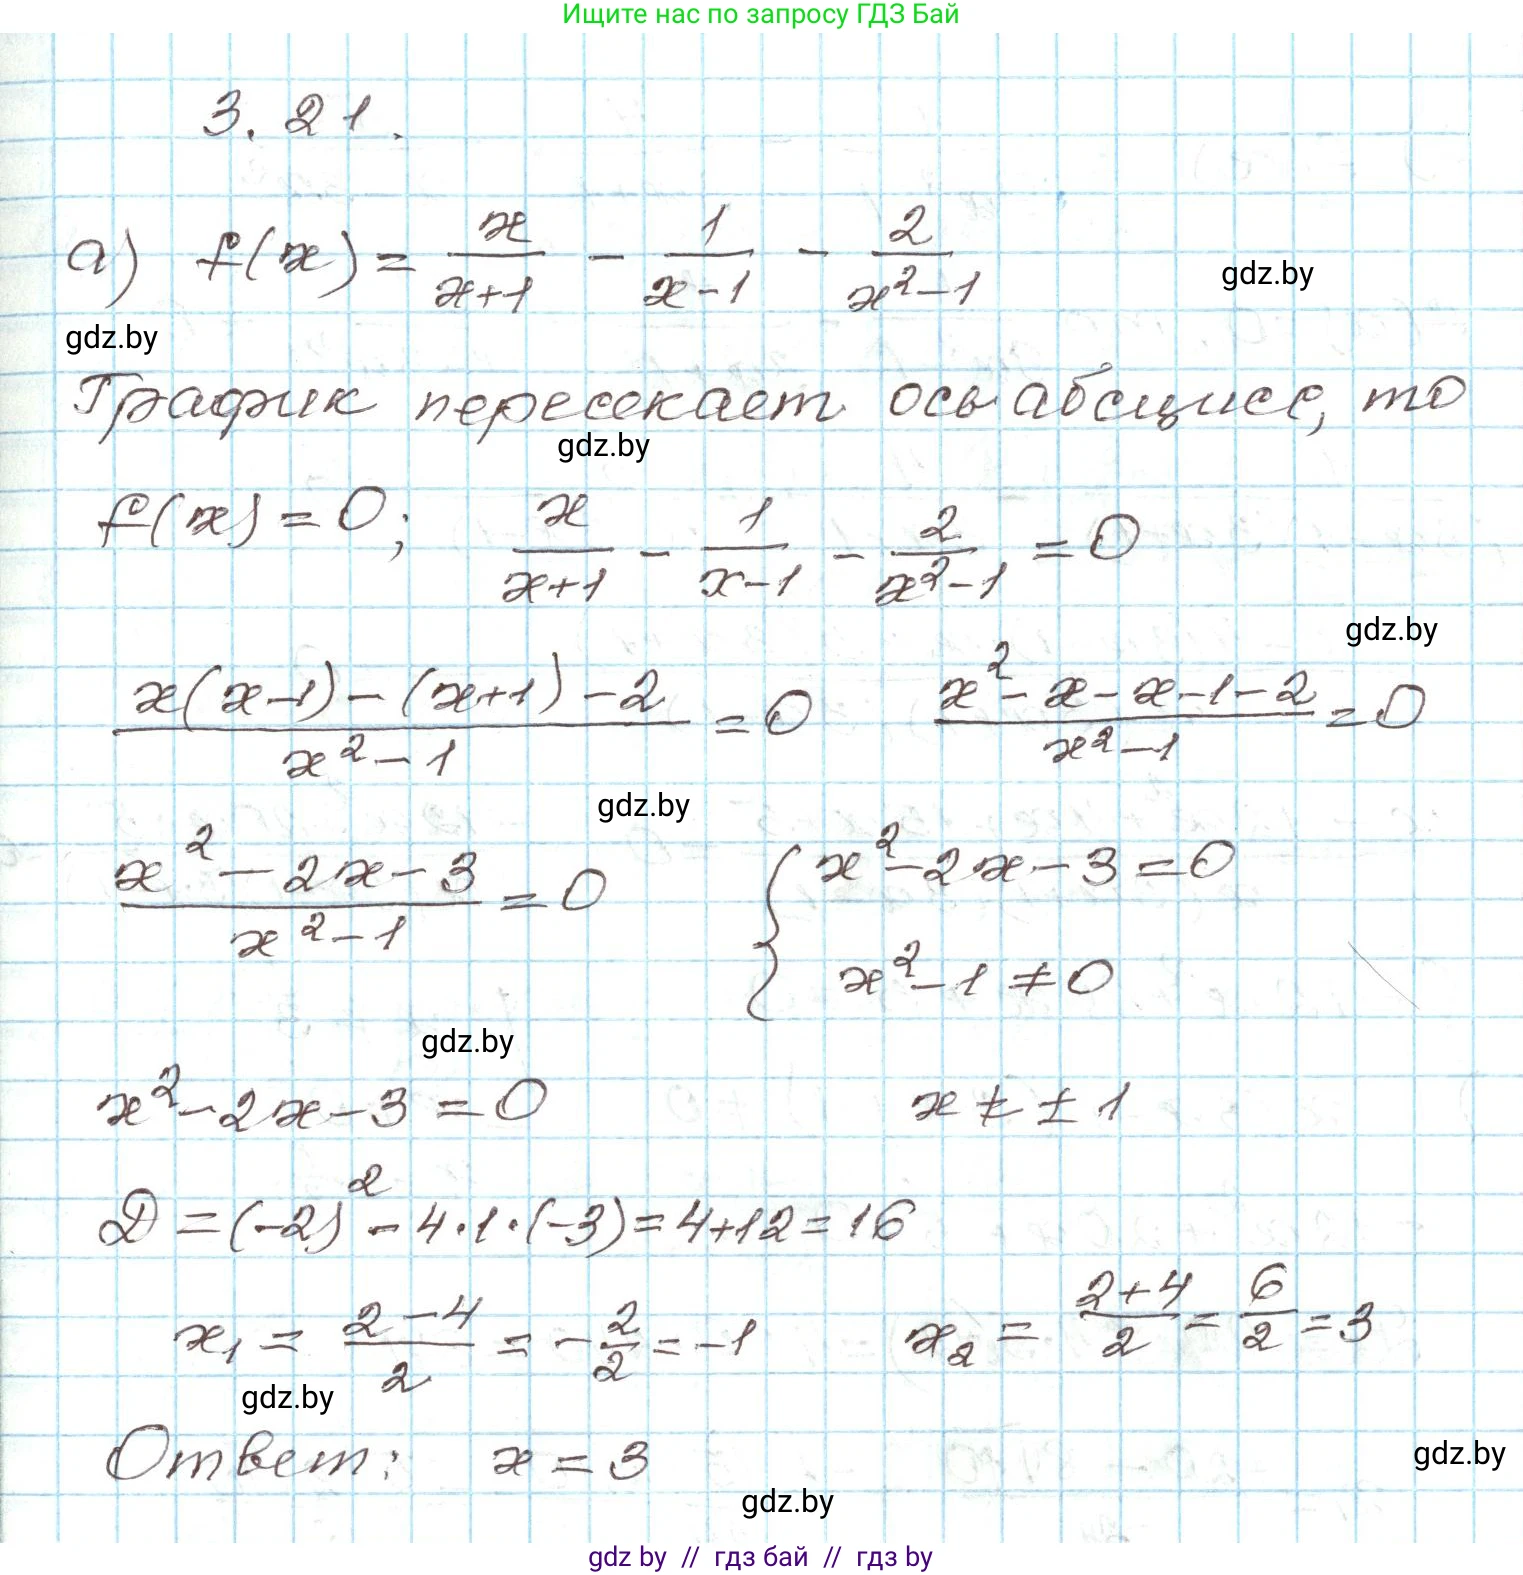 Ищите нас по запросу ГДЗ Бай
3.21.
а) f(x) = x/(x+1) - 1/(x-1) - 2/(x²-1)
gdz.by
gdz.by
График пересекает ось абсцисс, то
gdz.by
f(x) = 0; x/(x+1) - 1/(x-1) - 2/(x²-1) = 0
gdz.by
(x(x-1) - (x+1) - 2)/(x²-1) = 0 (x² - x - x - 1 - 2)/(x²-1) = 0
gdz.by
(x² - 2x - 3)/(x²-1) = 0 { x² - 2x - 3 = 0
x² - 1 ≠ 0
gdz.by
x² - 2x - 3 = 0 x ≠ ±1
D = (-2)² - 4·1·(-3) = 4+12 = 16
x₁ = (2-4)/2 = -2/2 = -1 x₂ = (2+4)/2 = 6/2 = 3
gdz.by
Ответ: x = 3
gdz.by
gdz.by
gdz by // гдз бай // гдз by